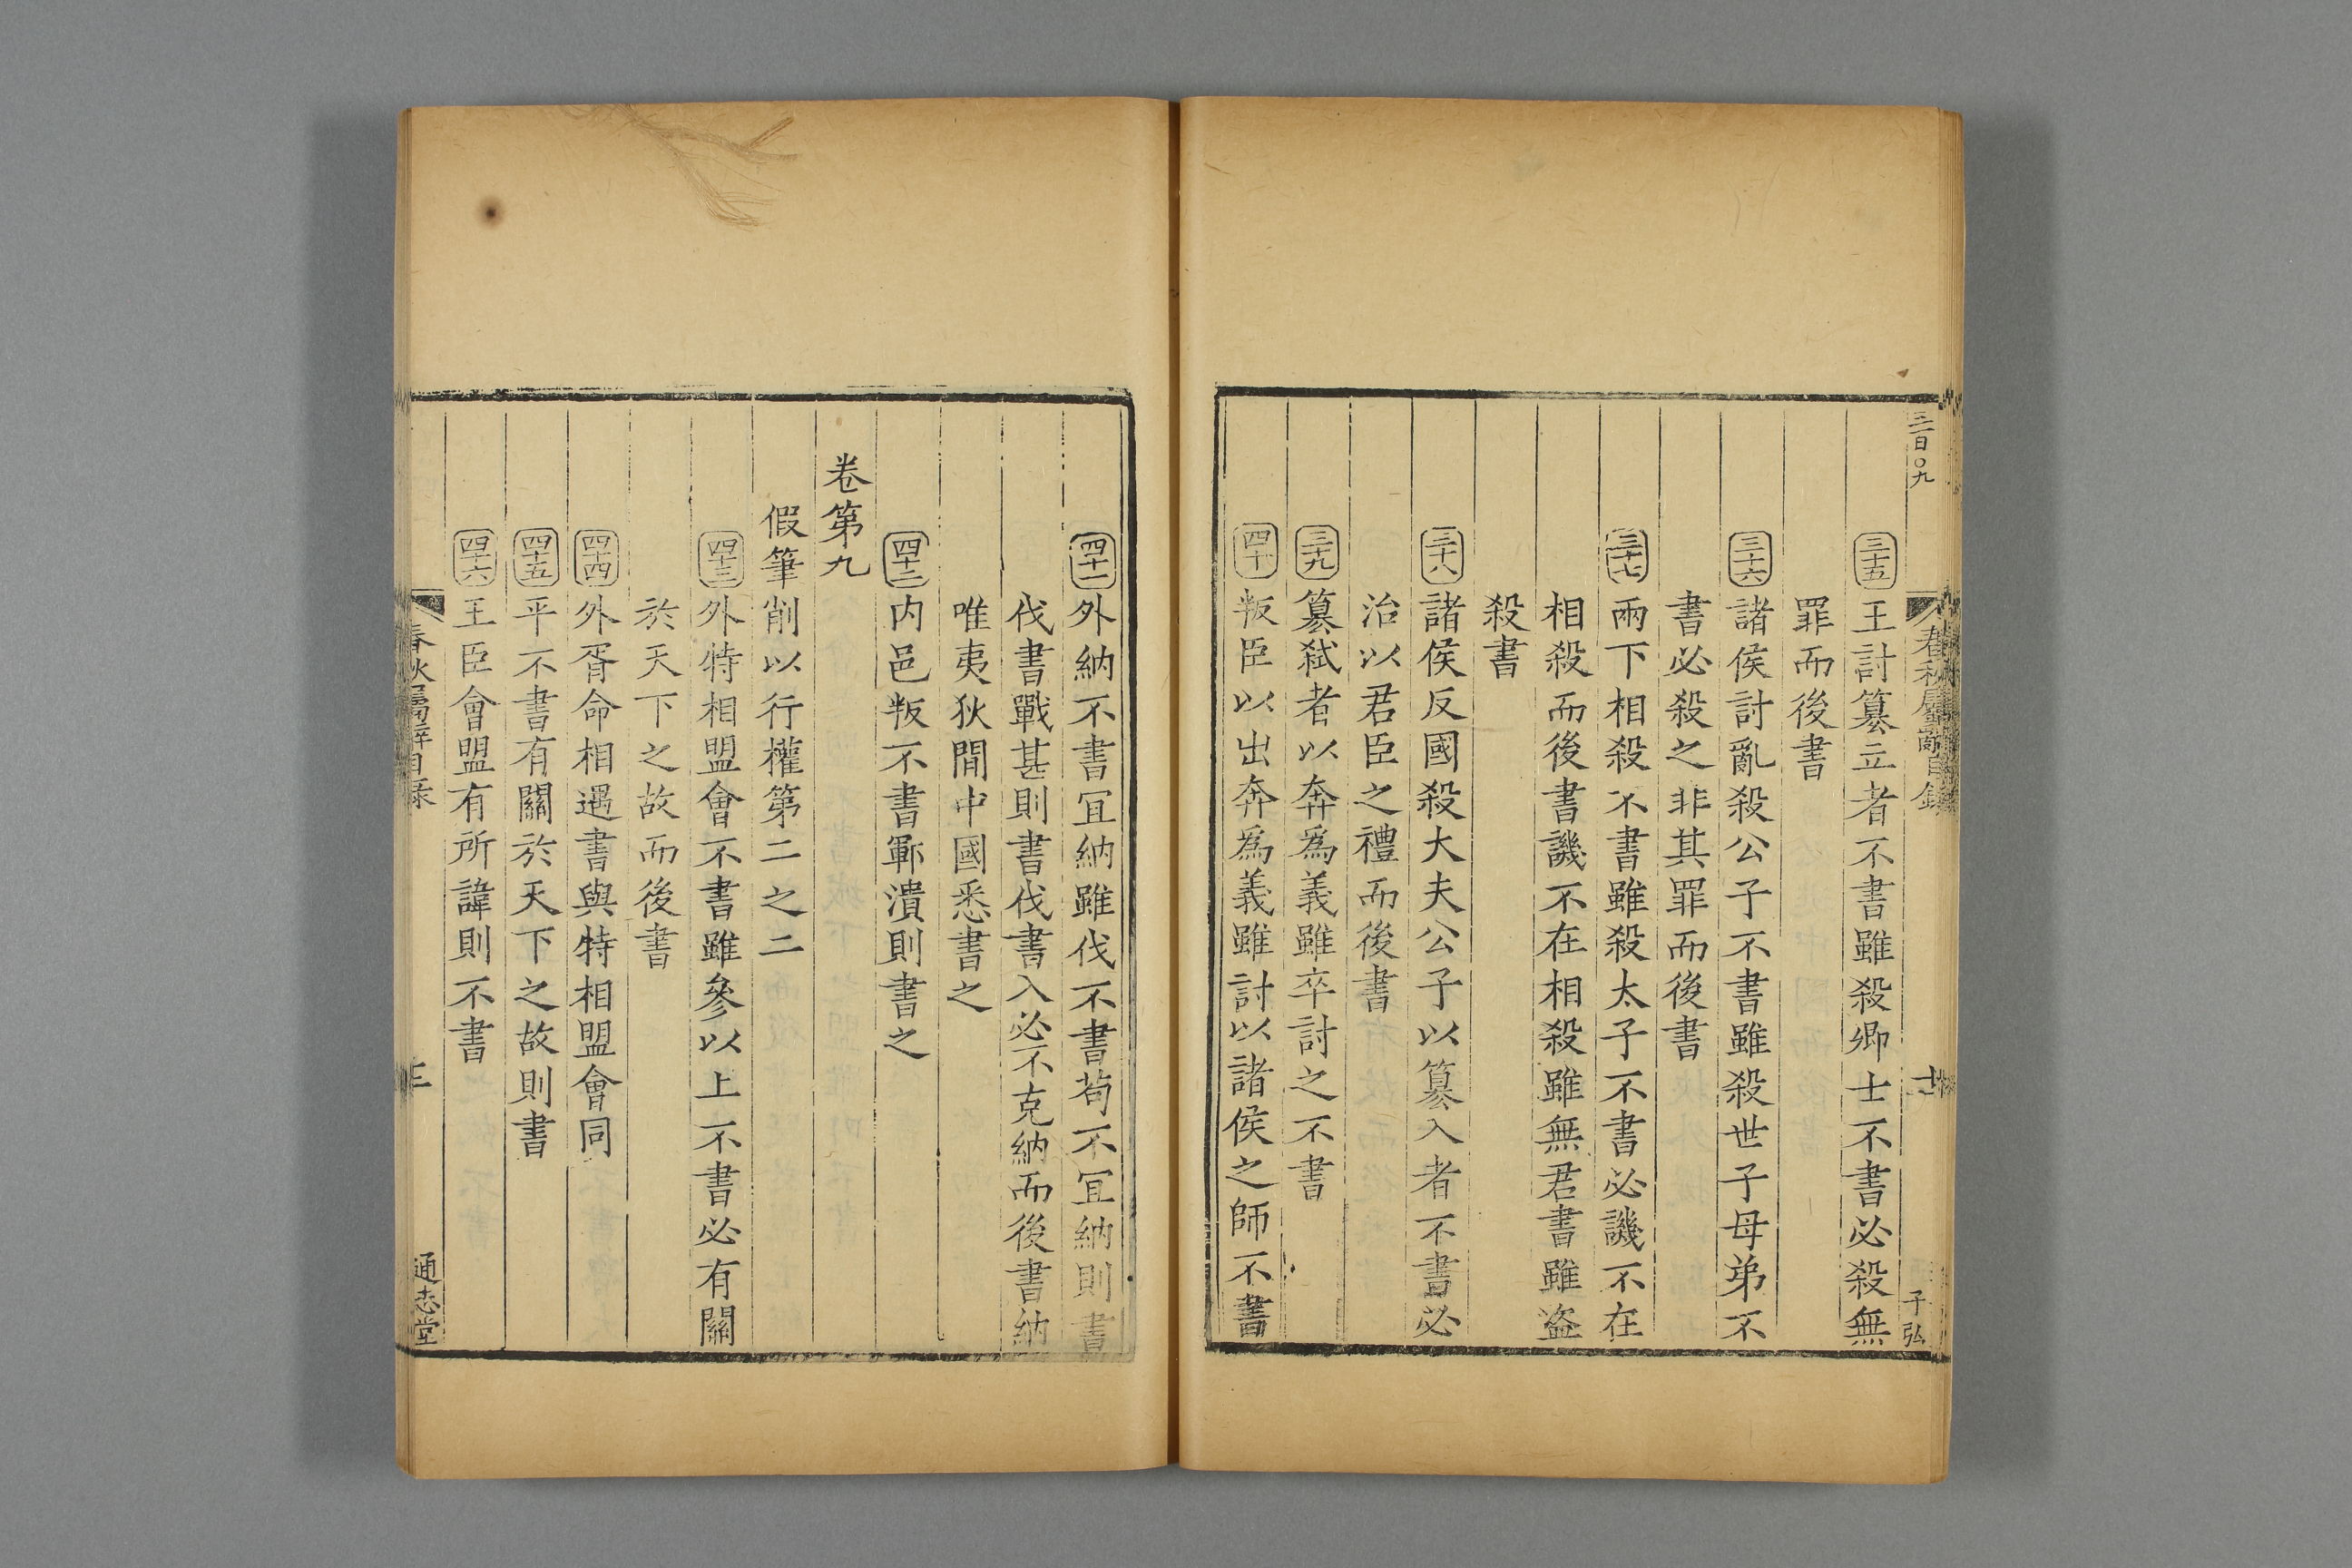 三百〇九
春秋屬辭目録
十
子弘
三十五王討篡立者不書雖殺卿士不書必殺無
罪而後書
三十六諸侯討亂殺公子不書雖殺世子母弟不
書必殺之非其罪而後書
三十七兩下相殺不書雖殺太子不書必譏不在
相殺而後書譏不在相殺雖無君書雖盗
殺書
三十八諸侯反國殺大夫公子以篡入者不書必
治以君臣之禮而後書
三十九篡弑者以奔為義雖卒討之不書
四十叛臣以出奔為義雖討以諸侯之師不書
四十一外納不書冝納雖伐不書茍不冝納則書
伐書戰甚則書伐書入必不克納而後書納
唯夷狄間中國悉書之
四十二内邑叛不書鄆潰則書之
卷第九
假筆削以行權第二之二
四十三外特相盟會不書雖參以上不書必有關
於天下之故而後書
四十四外胥命相遇書與特相盟會同
四十五平不書有關於天下之故則書
四十六王臣會盟有所諱則不書
春秋屬辭目录
通志堂